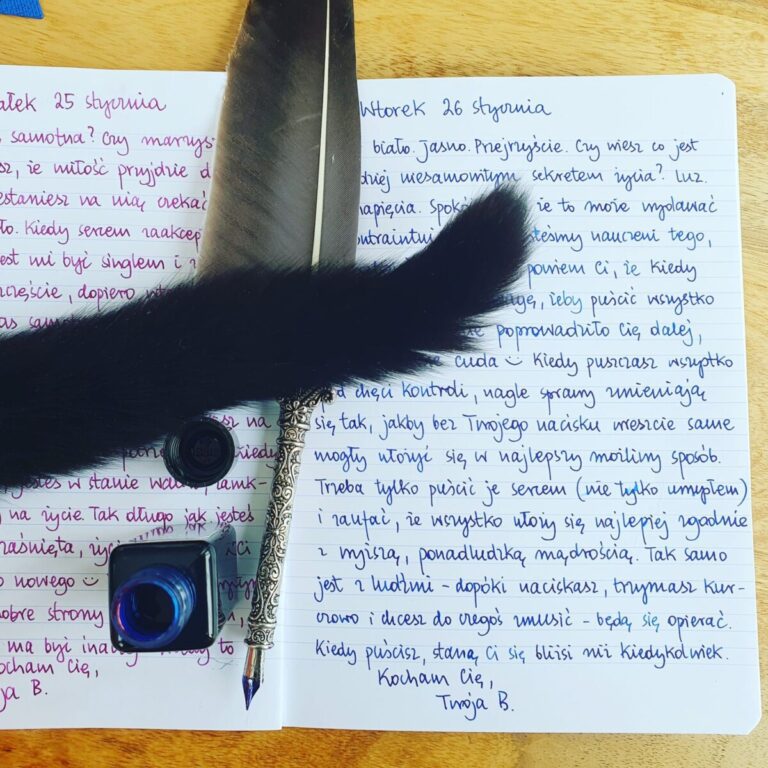 ałek 25 stycznia
samotna? Czy marzysz
sz, że miłość przyjdzie d
estaniesz na nią czekać
ło. Kiedy sercem zaakcep
est mi być singlem i
częście, dopiero
as samot
na
jesteś w stanie
na życie. Tak długo jak jesteś
o nowego
obre strony
ma być
Kocham Cię,
ja B.
Wtorek 26 stycznia
biało. Jasno. Przejrzyście. Czy wiesz co jest
dziej niesamowitym sekretem życia? Luz.
napięcia. że to może wydawać
ontraintui teśmy nauczeni tego,
powiem Ci, że kiedy
agę, żeby puścić wszystko
poprowadziło Cię dalej,
cuda Kiedy puszczasz wszystko
od chęci kontroli, nagle sprawy zmieniają
się tak, jakby bez Twojego nacisku wreszcie same
mogły ułożyć się w najlepszy możliwy sposób.
Trzeba tylko puścić je sercem (nie tylko umysłem)
i zaufać, że wszystko ułoży się najlepiej zgodnie
z wyższą, ponadludzką mądrością. Tak samo
jest z ludźmi - dopóki naciskasz, trzymasz kur-
czowo i chcesz do czegoś zmusić - będą się opierać.
Kiedy puścisz, staną Ci się bliżsi niż kiedykolwiek.
Kocham Cię,
Twoja B.